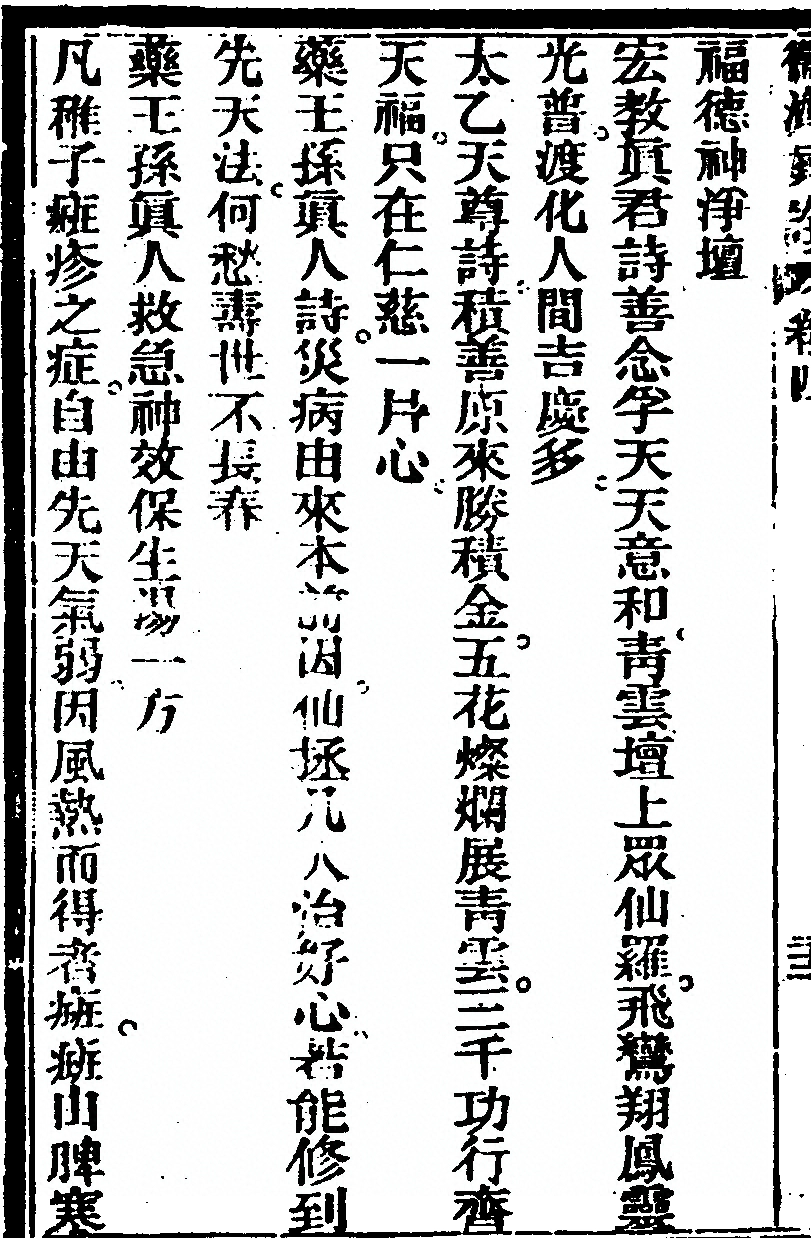 卷四
福德神淨壇
宏教眞君詩善念孚天天意和青雲壇上眾仙羅飛鸞翔鳳靈
光普渡化人間吉慶多
太乙天尊詩積善原來勝積金五花燦爛展青雲三千功行齊
天福只在仁慈一片心
藥王孫眞人詩災病由來本前因仙拯凡人治好心若能修到
先天法何愁壽世不長春
藥王孫眞人救急神效保生湯一方
凡稚子痲疹之症自由先天氣弱因風熱而得者痲疹由脾寒